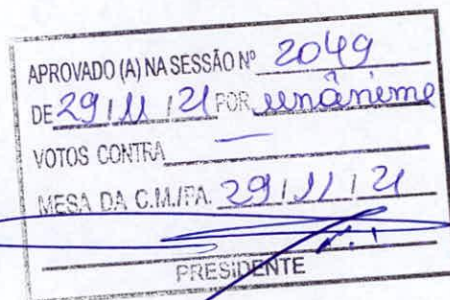 APROVADO (A) NA SESSÃO Nº 2049
DE 29/11/21 POR unânime
VOTOS CONTRA —
MESA DA C.M./PA. 29/11/21
PRESIDENTE